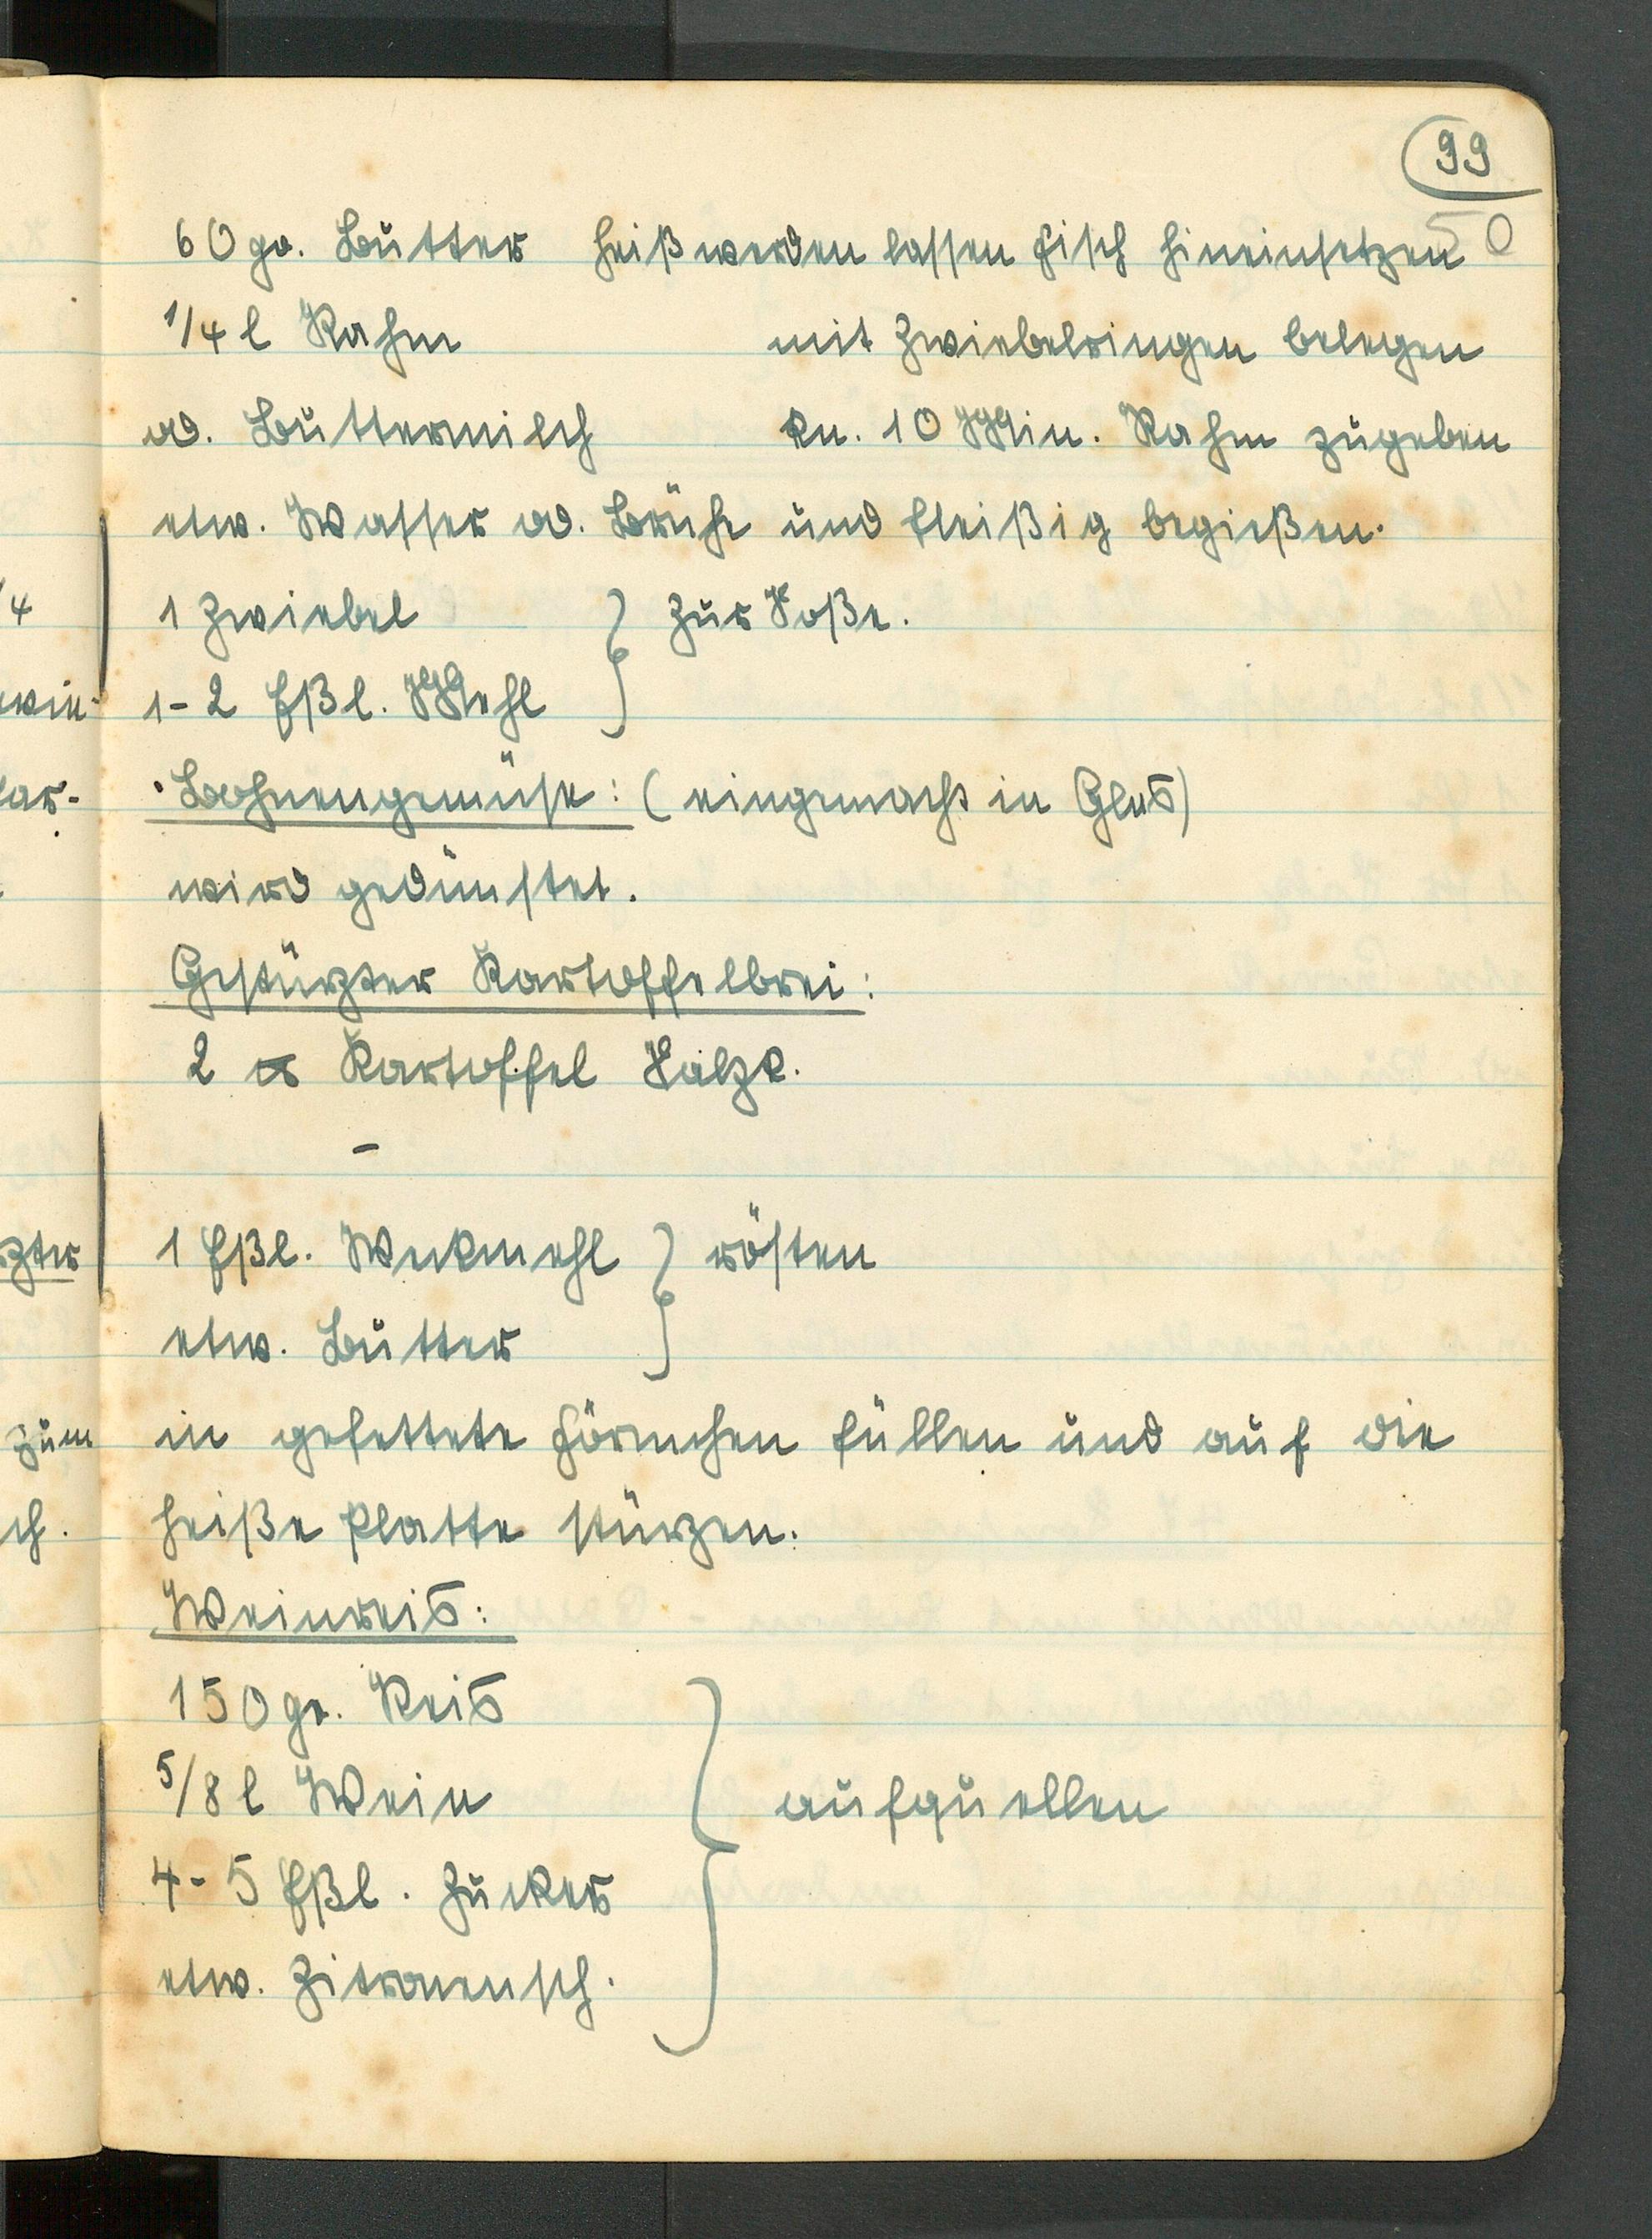 99
50
60 gr. Butter heiß werden lassen Fisch hineinsetzen
1/4 l Rahm mit Zwiebelringen belegen
od. Buttermilch 10 Min. Rahm zugeben
etw. Wasser od. Brühe und fleißig begießen.
1 Zwiebel } zur Soße.
1-2 Eßl. Mehl
Bohnengemüse: (eingemacht in Glas)
wird gedünstet.
Gestürzter Kartoffelbrei:
2 ℔ Kartoffel Salzk.
–
1 Eßl. Wekmehl } rösten
etw. Butter
in gefettete Förmchen füllen und auf die
heiße Platte stürzen.
Weinreis:
150 gr. Reis
5/8 l Wein } aufquellen
4-5 Eßl. Zucker
etw. Zitronensch.
4
lar-
zter
zum
ch.